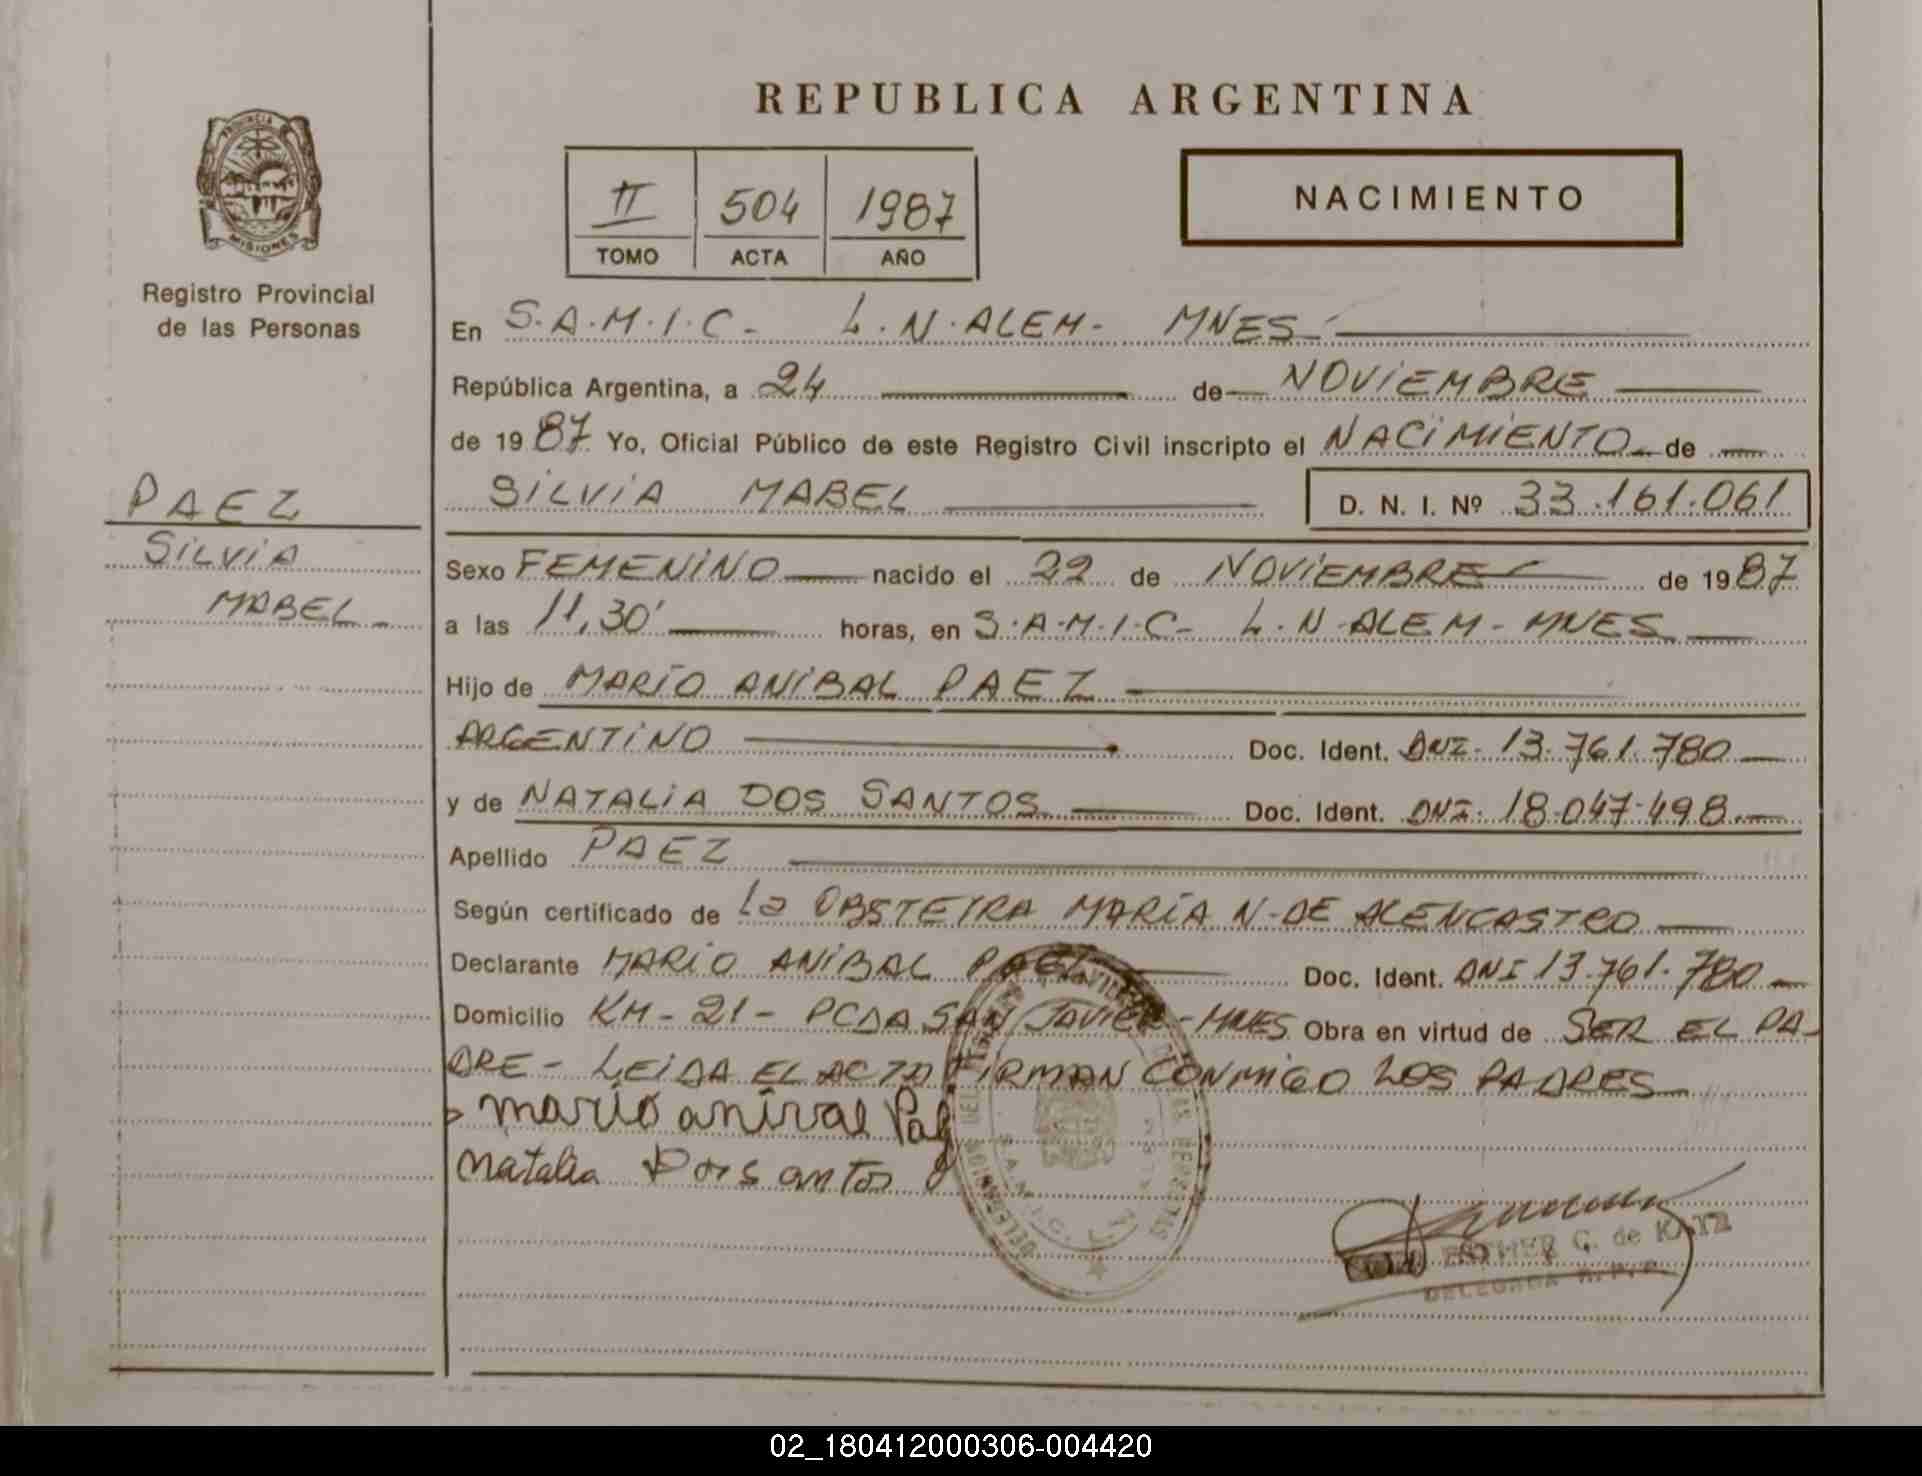 REPUBLICA ARGENTINA
PROVINCIA DE
MISIONES
Registro Provincial
de las Personas
II 504 1987
TOMO ACTA AÑO
NACIMIENTO
En S.A.M.I.C- L.N.ALEM- MNES
República Argentina, a 24 de NOViEMBRE
de 1987 Yo, Oficial Público de este Registro Civil inscripto el NACiMiENTO de
SiLViA MABEL D. N. I. Nº 33.161.061
PAEZ
SiLViA
MABEL
Sexo FEMENiNO nacido el 22 de NOViEMBRE de 1987
a las 11,30' horas, en S.A.M.I.C- L.N.ALEM-MNES
Hijo de MARiO ANiBAL PAEZ
ARGENTiNO Doc. Ident. DNI- 13.761.780
y de NATALiA DOS SANTOS Doc. Ident. DNI- 18.047.498.
Apellido PAEZ
Según certificado de La OBSTETRA MARÍA N. DE ALENCASTRO
Declarante MARiO ANiBAL PAEZ Doc. Ident. DNI 13.761.780
Domicilio KM-21- PCDA SAN JAVIER-MNES Obra en virtud de SER EL PA-
DRE- LEIDA EL ACTA FIRMAN CONMIGO LOS PADRES
mario anival Paez
Natalia Dos antos
ESTHER G. de KATZ
DELEGADA R.P.P.
02_180412000306-004420